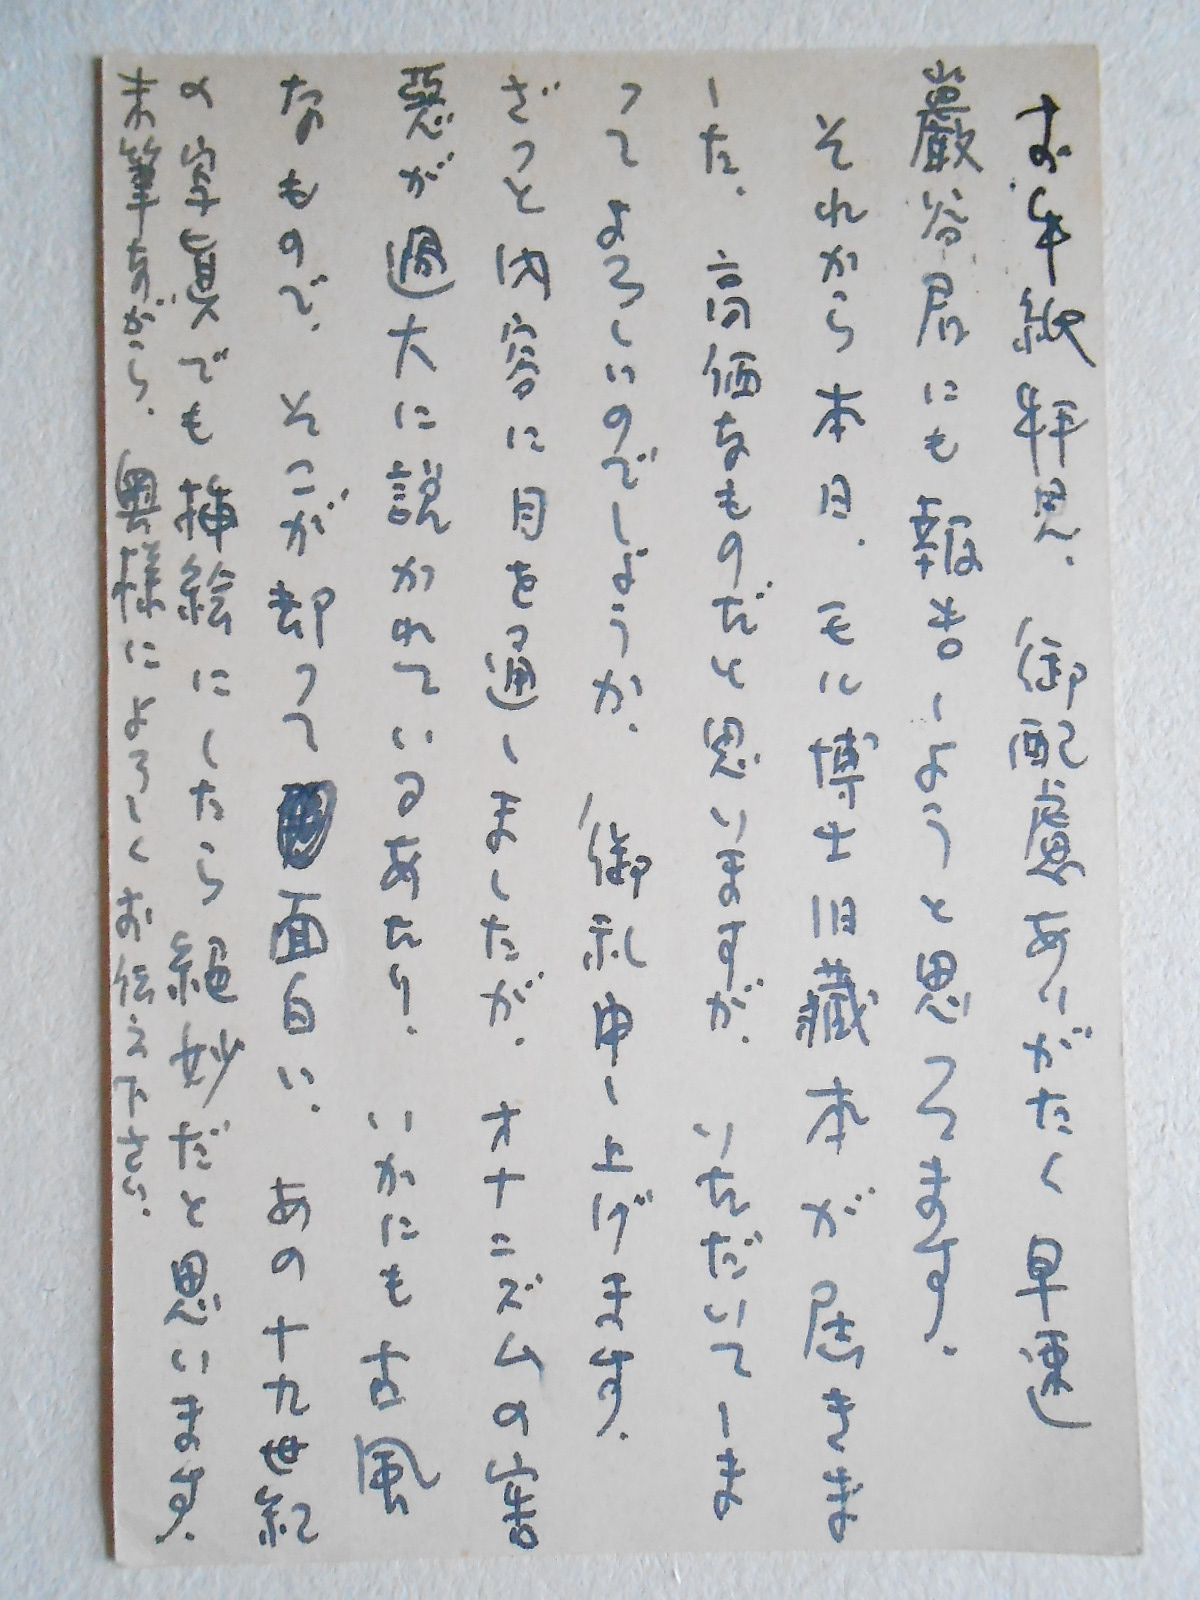 お手紙拝見、御配慮ありがたく早速
巖谷君にも報告しようと思つてます。
それから本日、モル博士旧蔵本が届きま
した、高価なものだと思いますが、いただいてしま
つてよろしいのでしようか、御礼申し上げます、
ざつと内容に目を通しましたが、オナニズムの害
悪が過大に説かれているあたり、いかにも古風
なもので、そこが却つて面白い、あの十九世紀
の写真でも挿絵にしたら絶妙だと思います、
末筆ながら、奥様によろしくお伝え下さい、